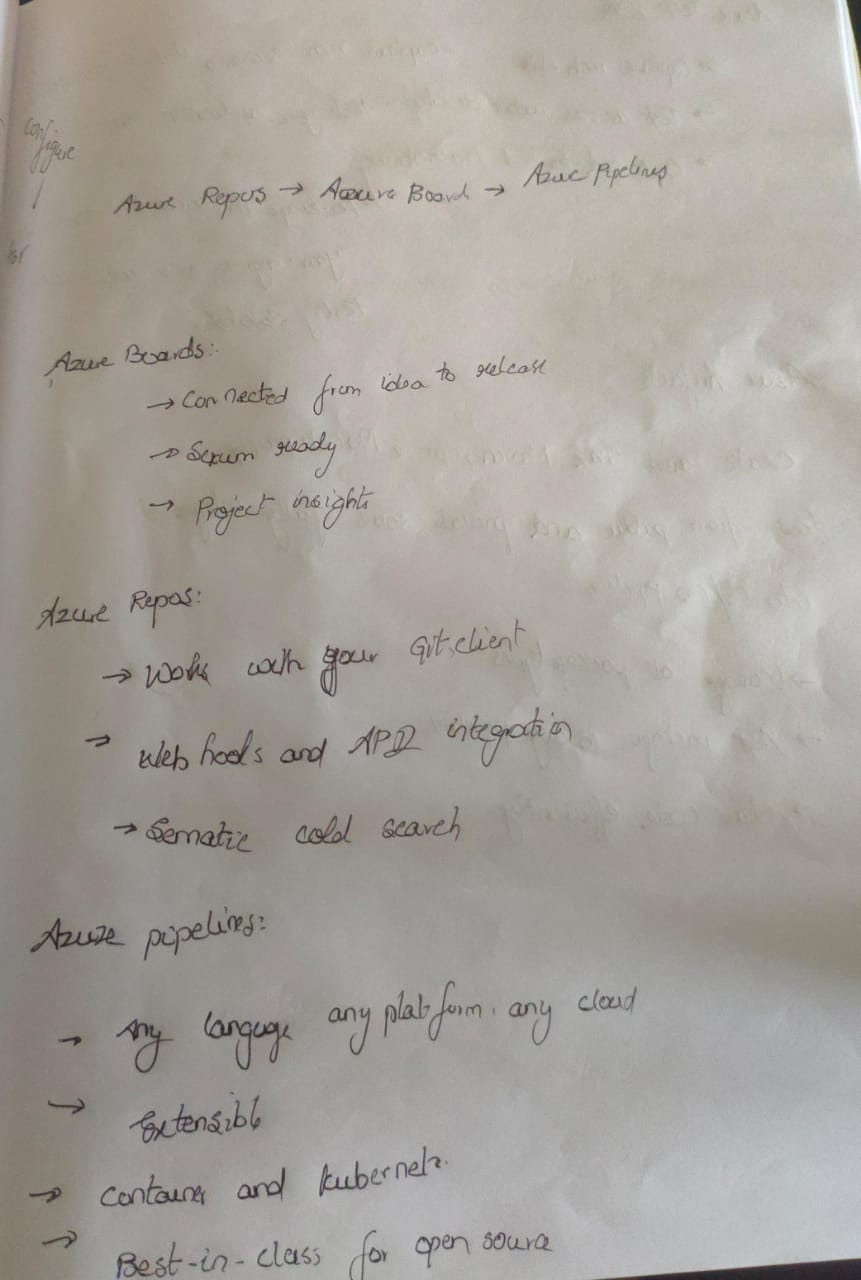 Configure
Azure Repos → Azzure Board → Azue Pipelines
Azure Boards:
→ Connected from idea to release
→ Scrum ready
→ Project insights
Azure Repos:
→ Works with your Git client
→ Web hooks and API integration
→ Sematic cold search
Azure pipelines:
→ Any languge any platform. any cloud
→ Extensible
→ Container and kubernets.
→ Best-in-class for open source